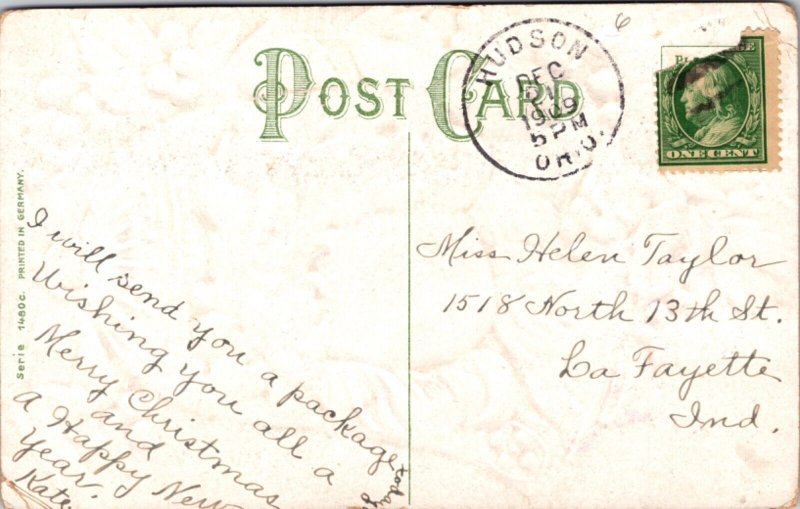 POST CARD
HUDSON
DEC
1909
5 PM
OHIO.
6
ONE CENT
Serie 1480c. PRINTED IN GERMANY.
I will send you a package today
Wishing you all a
Merry Christmas
and
a Happy New
Year.
Kate.
Miss Helen Taylor
1518 North 13th St.
La Fayette
Ind.